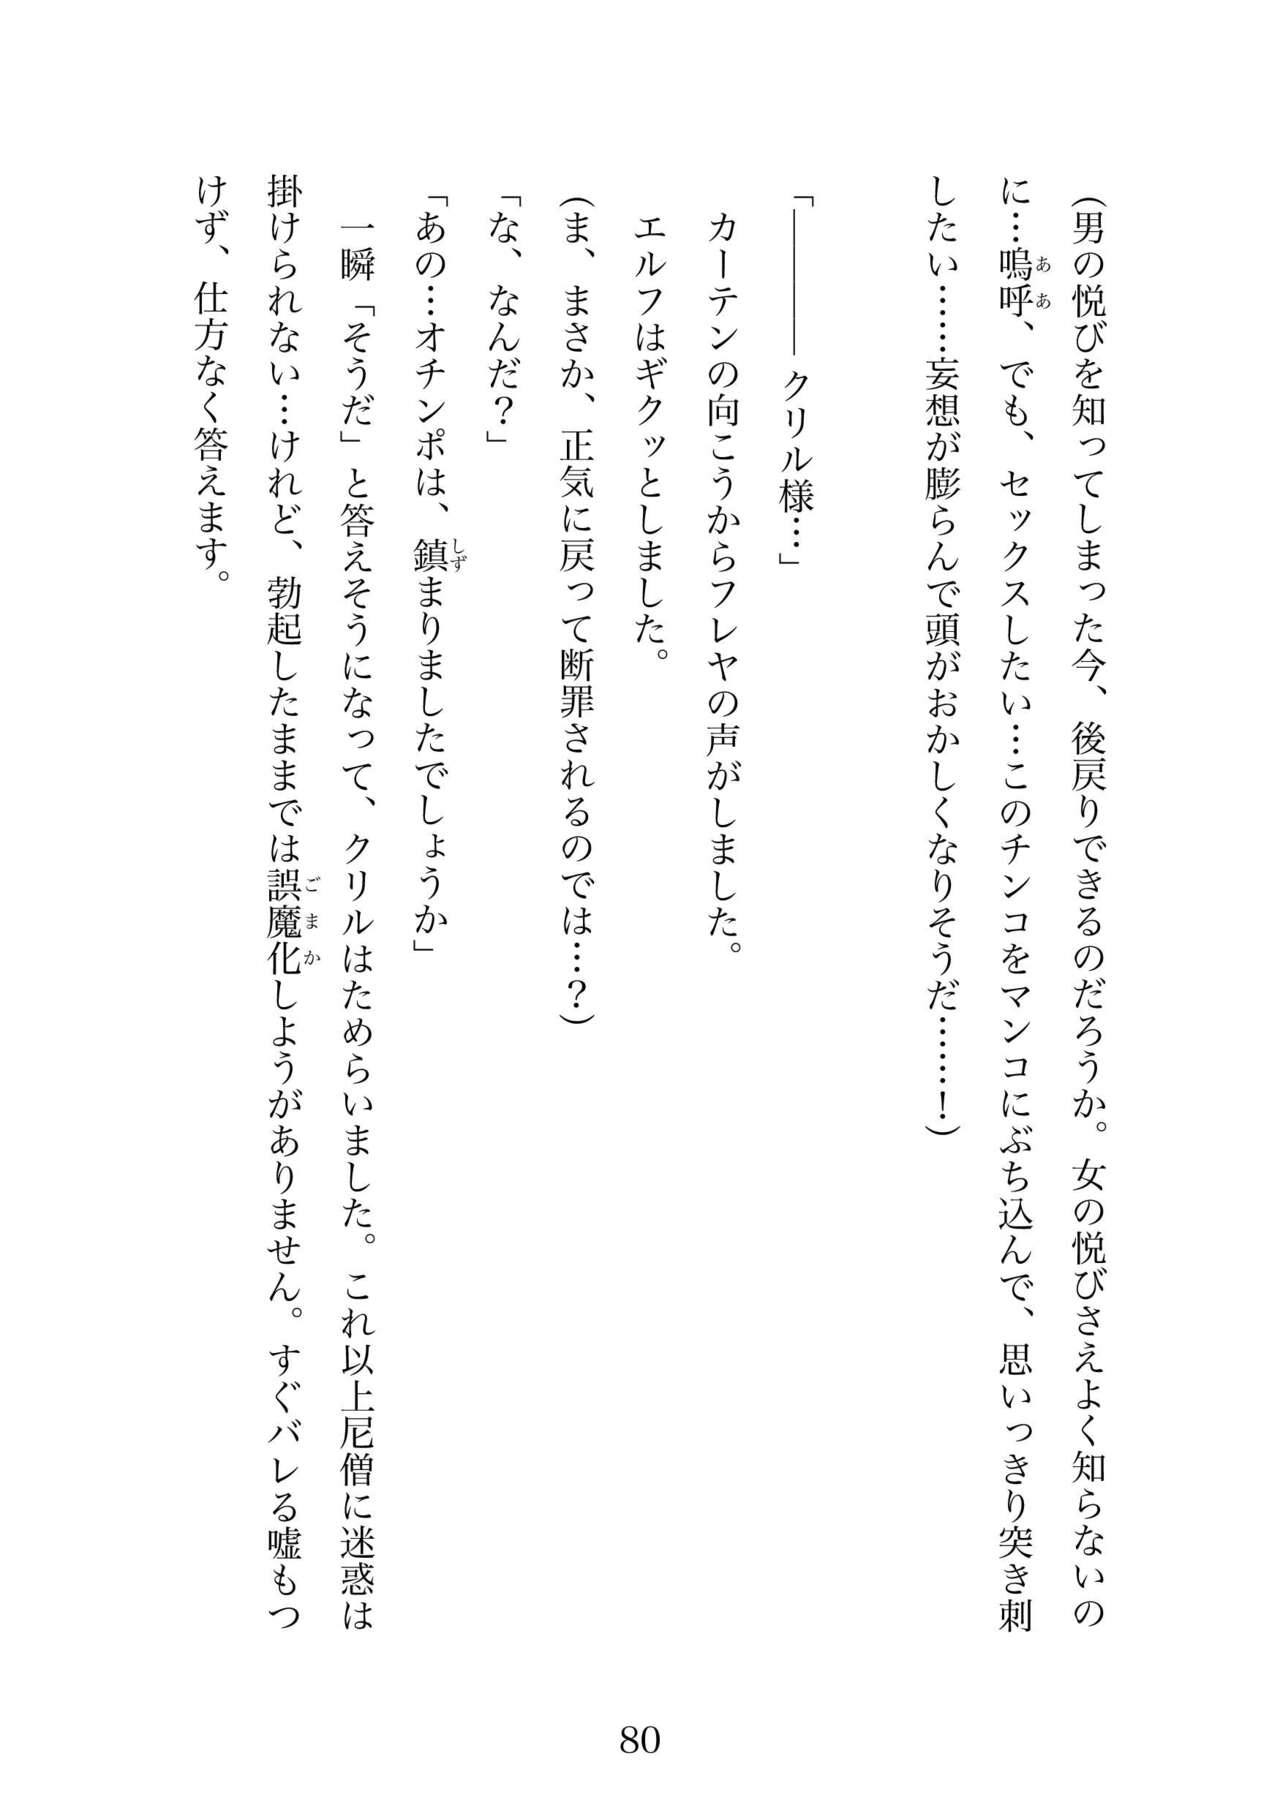 (男の悦びを知ってしまった今、後戻りできるのだろうか。女の悦びさえよく知らないの
に…嗚呼、でも、セックスしたい…このチンコをマンコにぶち込んで、思いっきり突き刺
したい……妄想が膨らんで頭がおかしくなりそうだ……!)
「────クリル様…」
カーテンの向こうからフレヤの声がしました。
エルフはギクッとしました。
(ま、まさか、正気に戻って断罪されるのでは…?)
「な、なんだ?」
「あの…オチンポは、鎮まりましたでしょうか」
一瞬「そうだ」と答えそうになって、クリルはためらいました。これ以上尼僧に迷惑は
掛けられない…けれど、勃起したままでは誤魔化しようがありません。すぐバレる嘘もつ
けず、仕方なく答えます。
80